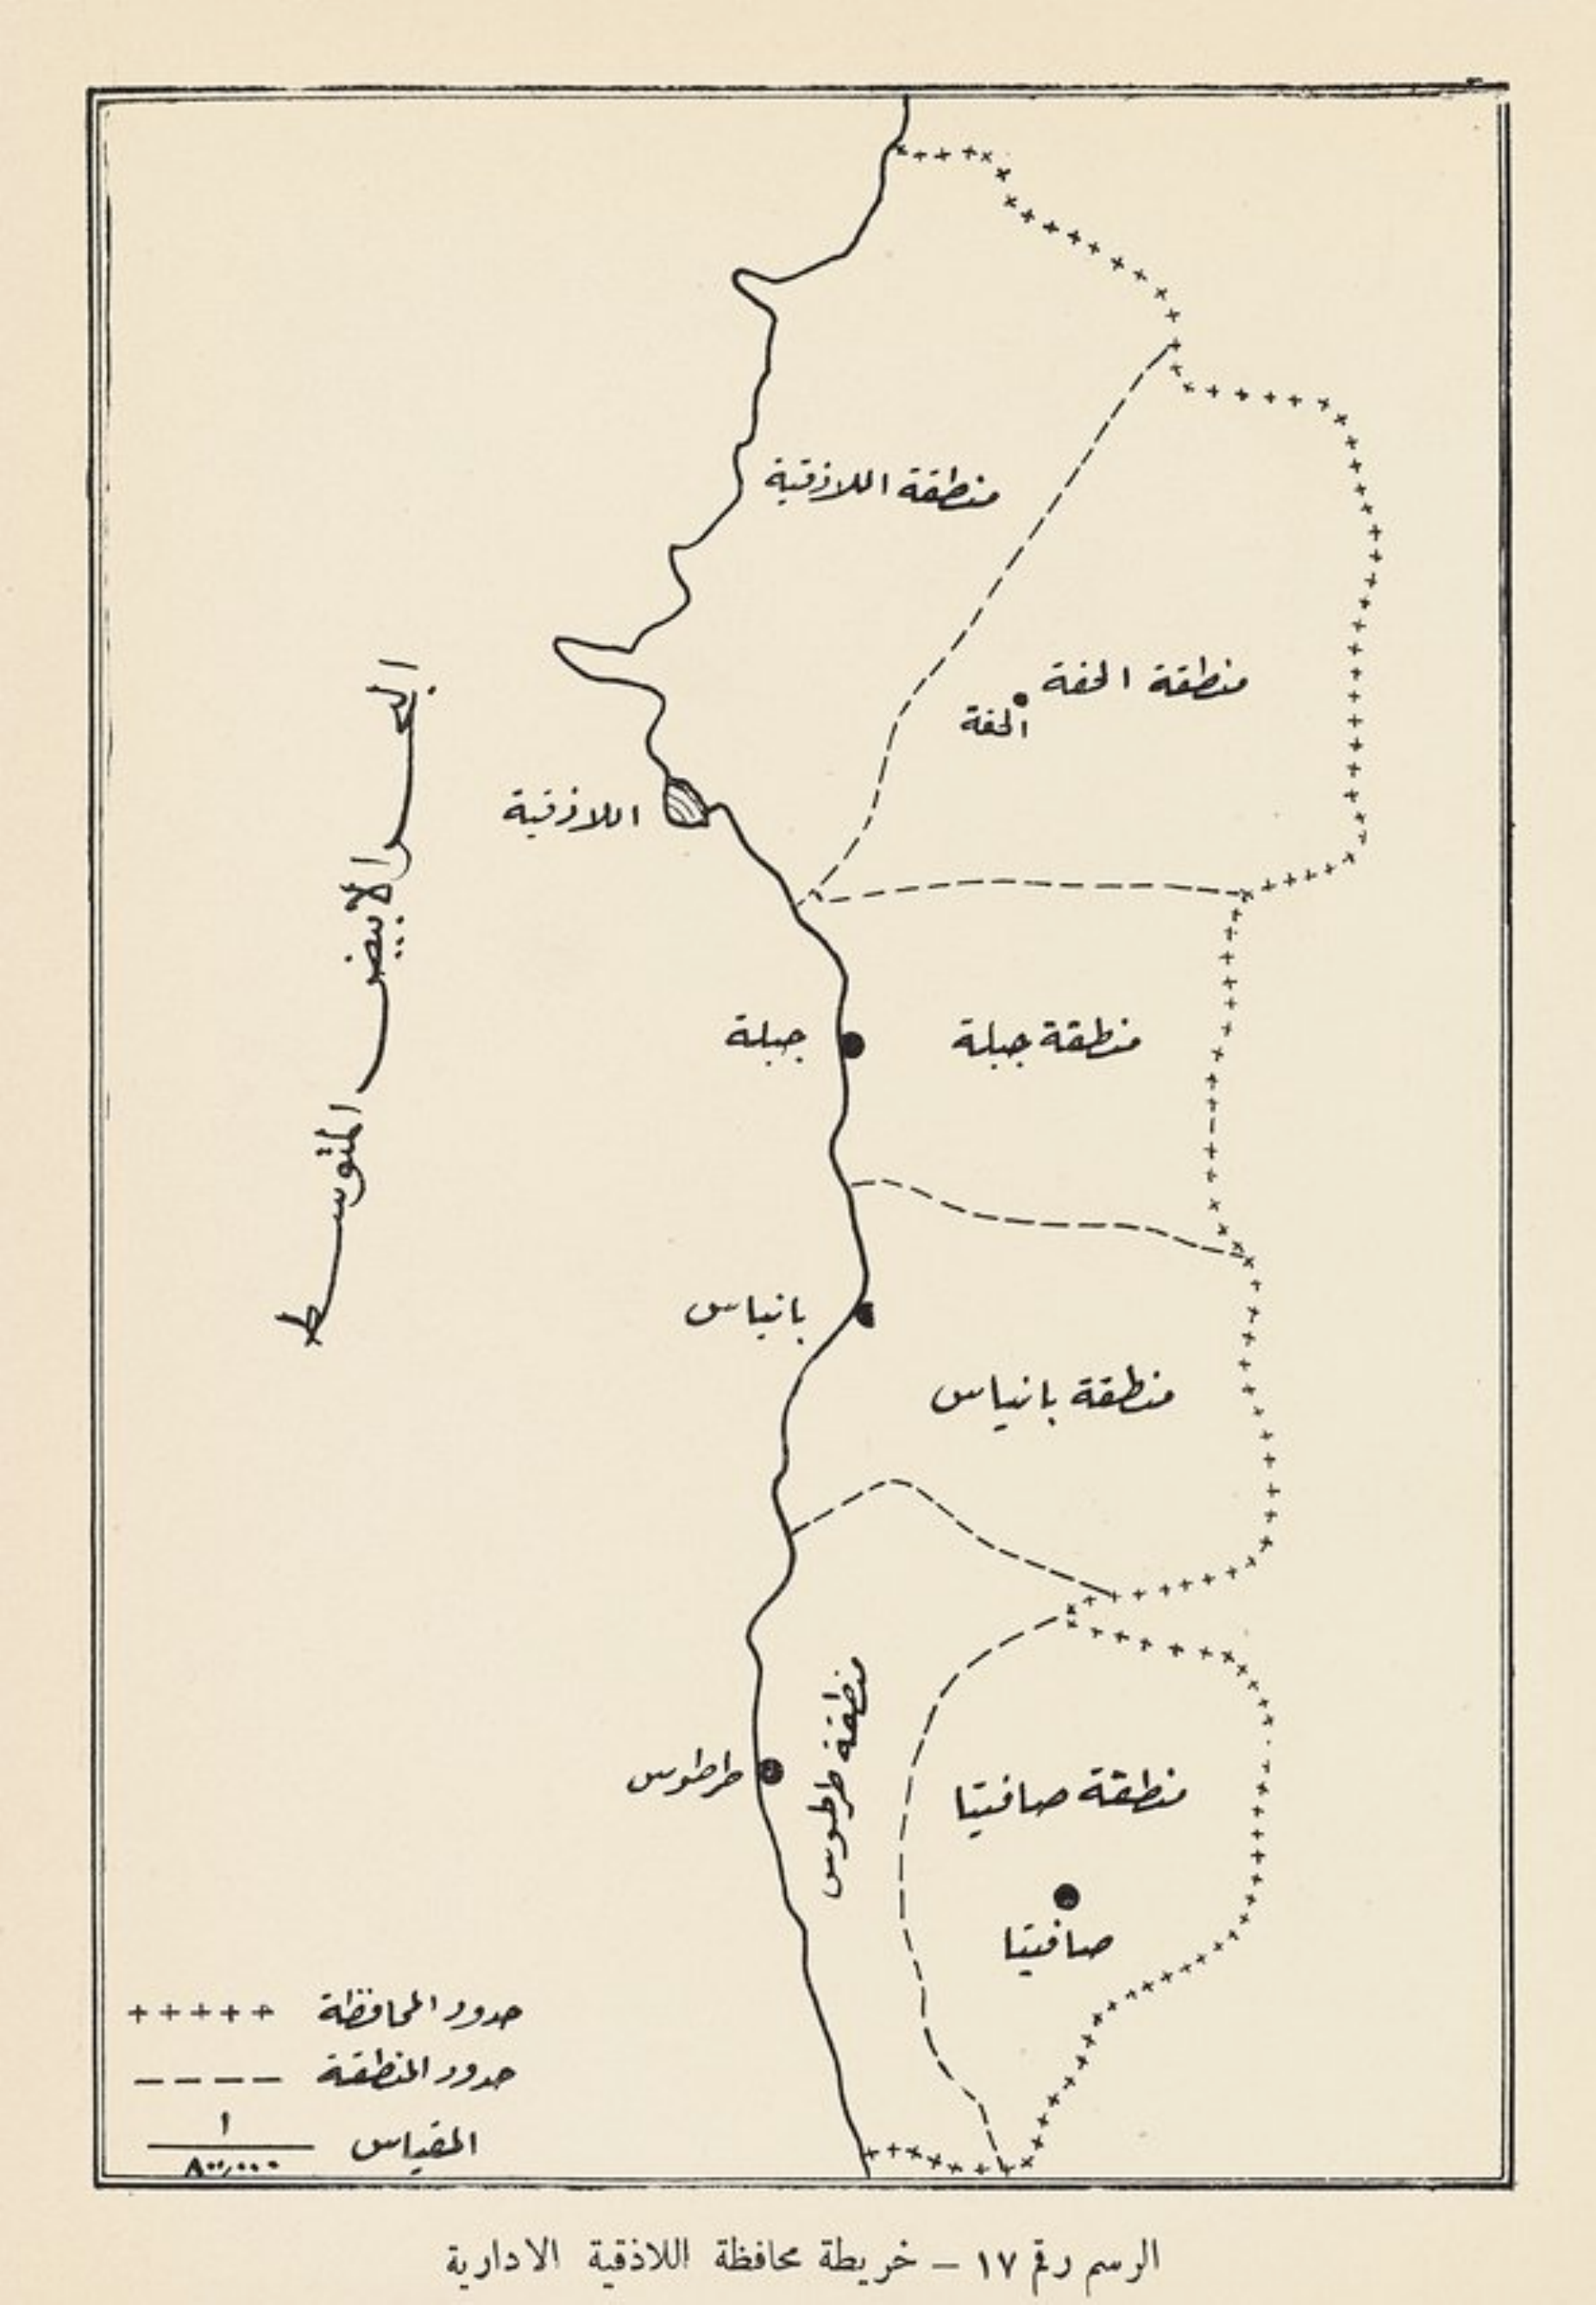 منطقة اللاذقية
منطقة الحفة
الحفة
اللاذقية
البحر الابيض المتوسط
منطقة جبلة
جبلة
بانياس
منطقة بانياس
منطقة طرطوس
طرطوس
منطقة صافيتا
صافيتا
حدود المحافظة
حدود المنطقة
المقياس ١/٨٠٠,٠٠٠
الرسم رقم ١٧ – خريطة محافظة اللاذقية الادارية